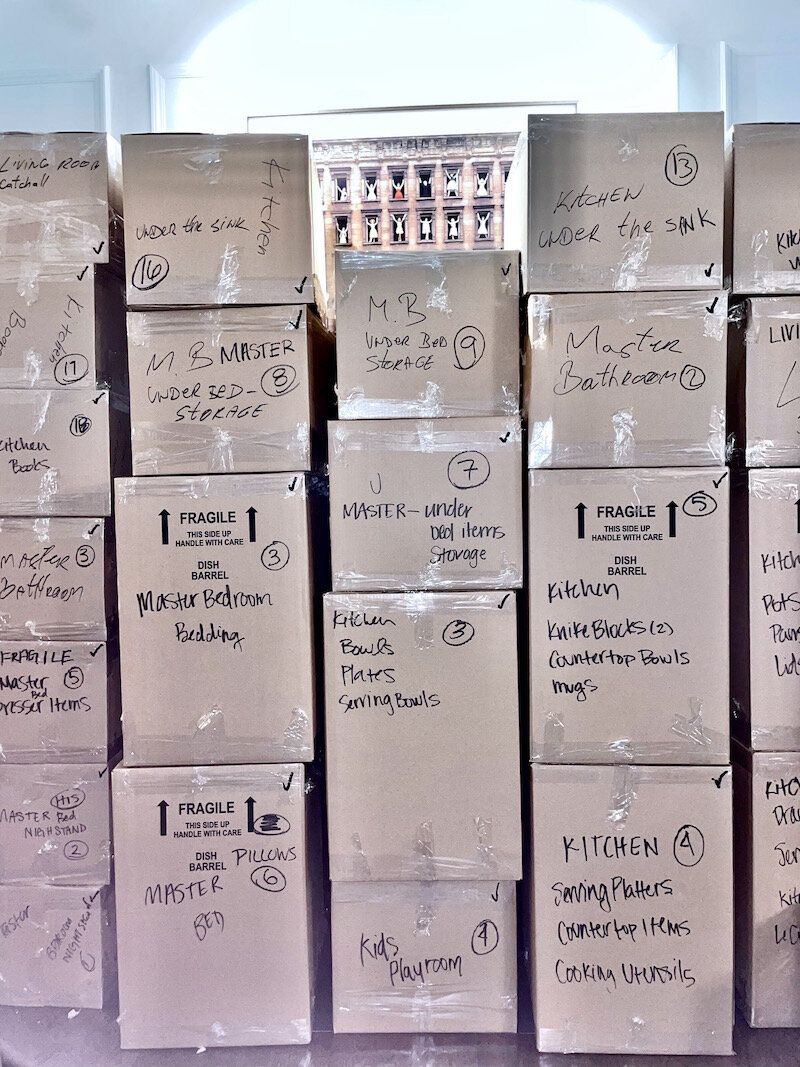 LIVING ROOM
Catchall
Kitchen
17
18
Kitchen
Books
MASTER 3
BATHROOM
FRAGILE
Master 5
Bed
Dresser Items
HIS
MASTER Bed
NIGHTSTAND
2
Kitchen
UNDER the SINK
16
M.B MASTER
UNDER BED- 8
STORAGE
FRAGILE
THIS SIDE UP
HANDLE WITH CARE
3
DISH
BARREL
Master Bedroom
Bedding
FRAGILE
THIS SIDE UP
HANDLE WITH CARE
DISH
BARREL
PILLOWS
6
MASTER
BED
M.B
UNDER BED 9
STORAGE
7
MASTER - under
bed items
Storage
Kitchen 3
Bowls
Plates
Serving Bowls
Kids 4
Playroom
13
KITCHEN
UNDER the SINK
Master
Bathroom 2
FRAGILE 5
THIS SIDE UP
HANDLE WITH CARE
DISH
BARREL
Kitchen
Knike Blocks (2)
Countertop Bowls
mugs
KITCHEN 4
Serving Platters
Countertop Items
Cooking Utensils
LIVI
Kitch
Pots
Pans
Lids